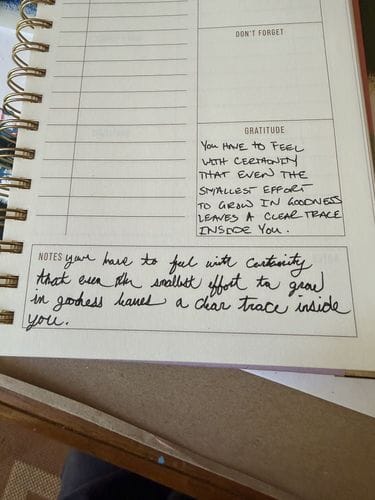 DON'T FORGET
GRATITUDE
YOU HAVE TO FEEL
WITH CERTAINITY
THAT EVEN THE
SMALLEST EFFORT
TO GROW IN GOODNESS
LEAVES A CLEAR TRACE
INSIDE YOU.
NOTES you have to feel with certainity
that even the smallest effort to grow
in goodness leaves a clear trace inside
you.